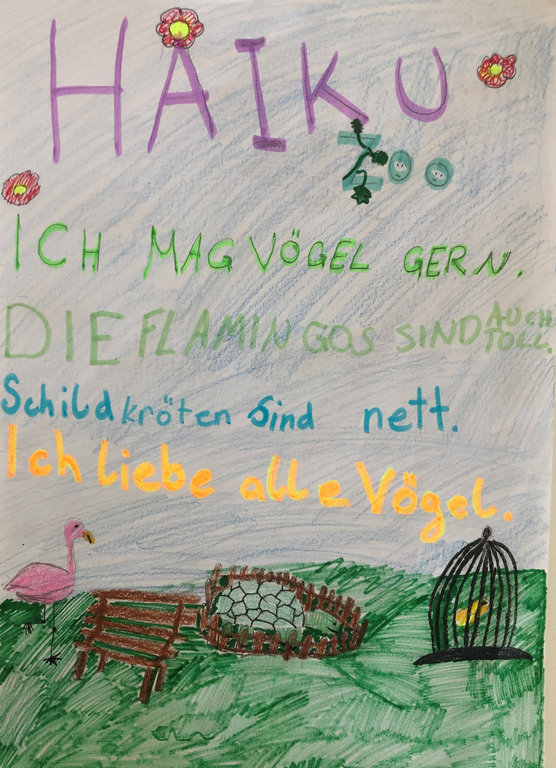 HAIKU
ZOO
ICH MAG VÖGEL GERN.
DIE FLAMINGOS SIND AUCH TOLL.
Schildkröten sind nett.
Ich liebe alle Vögel.